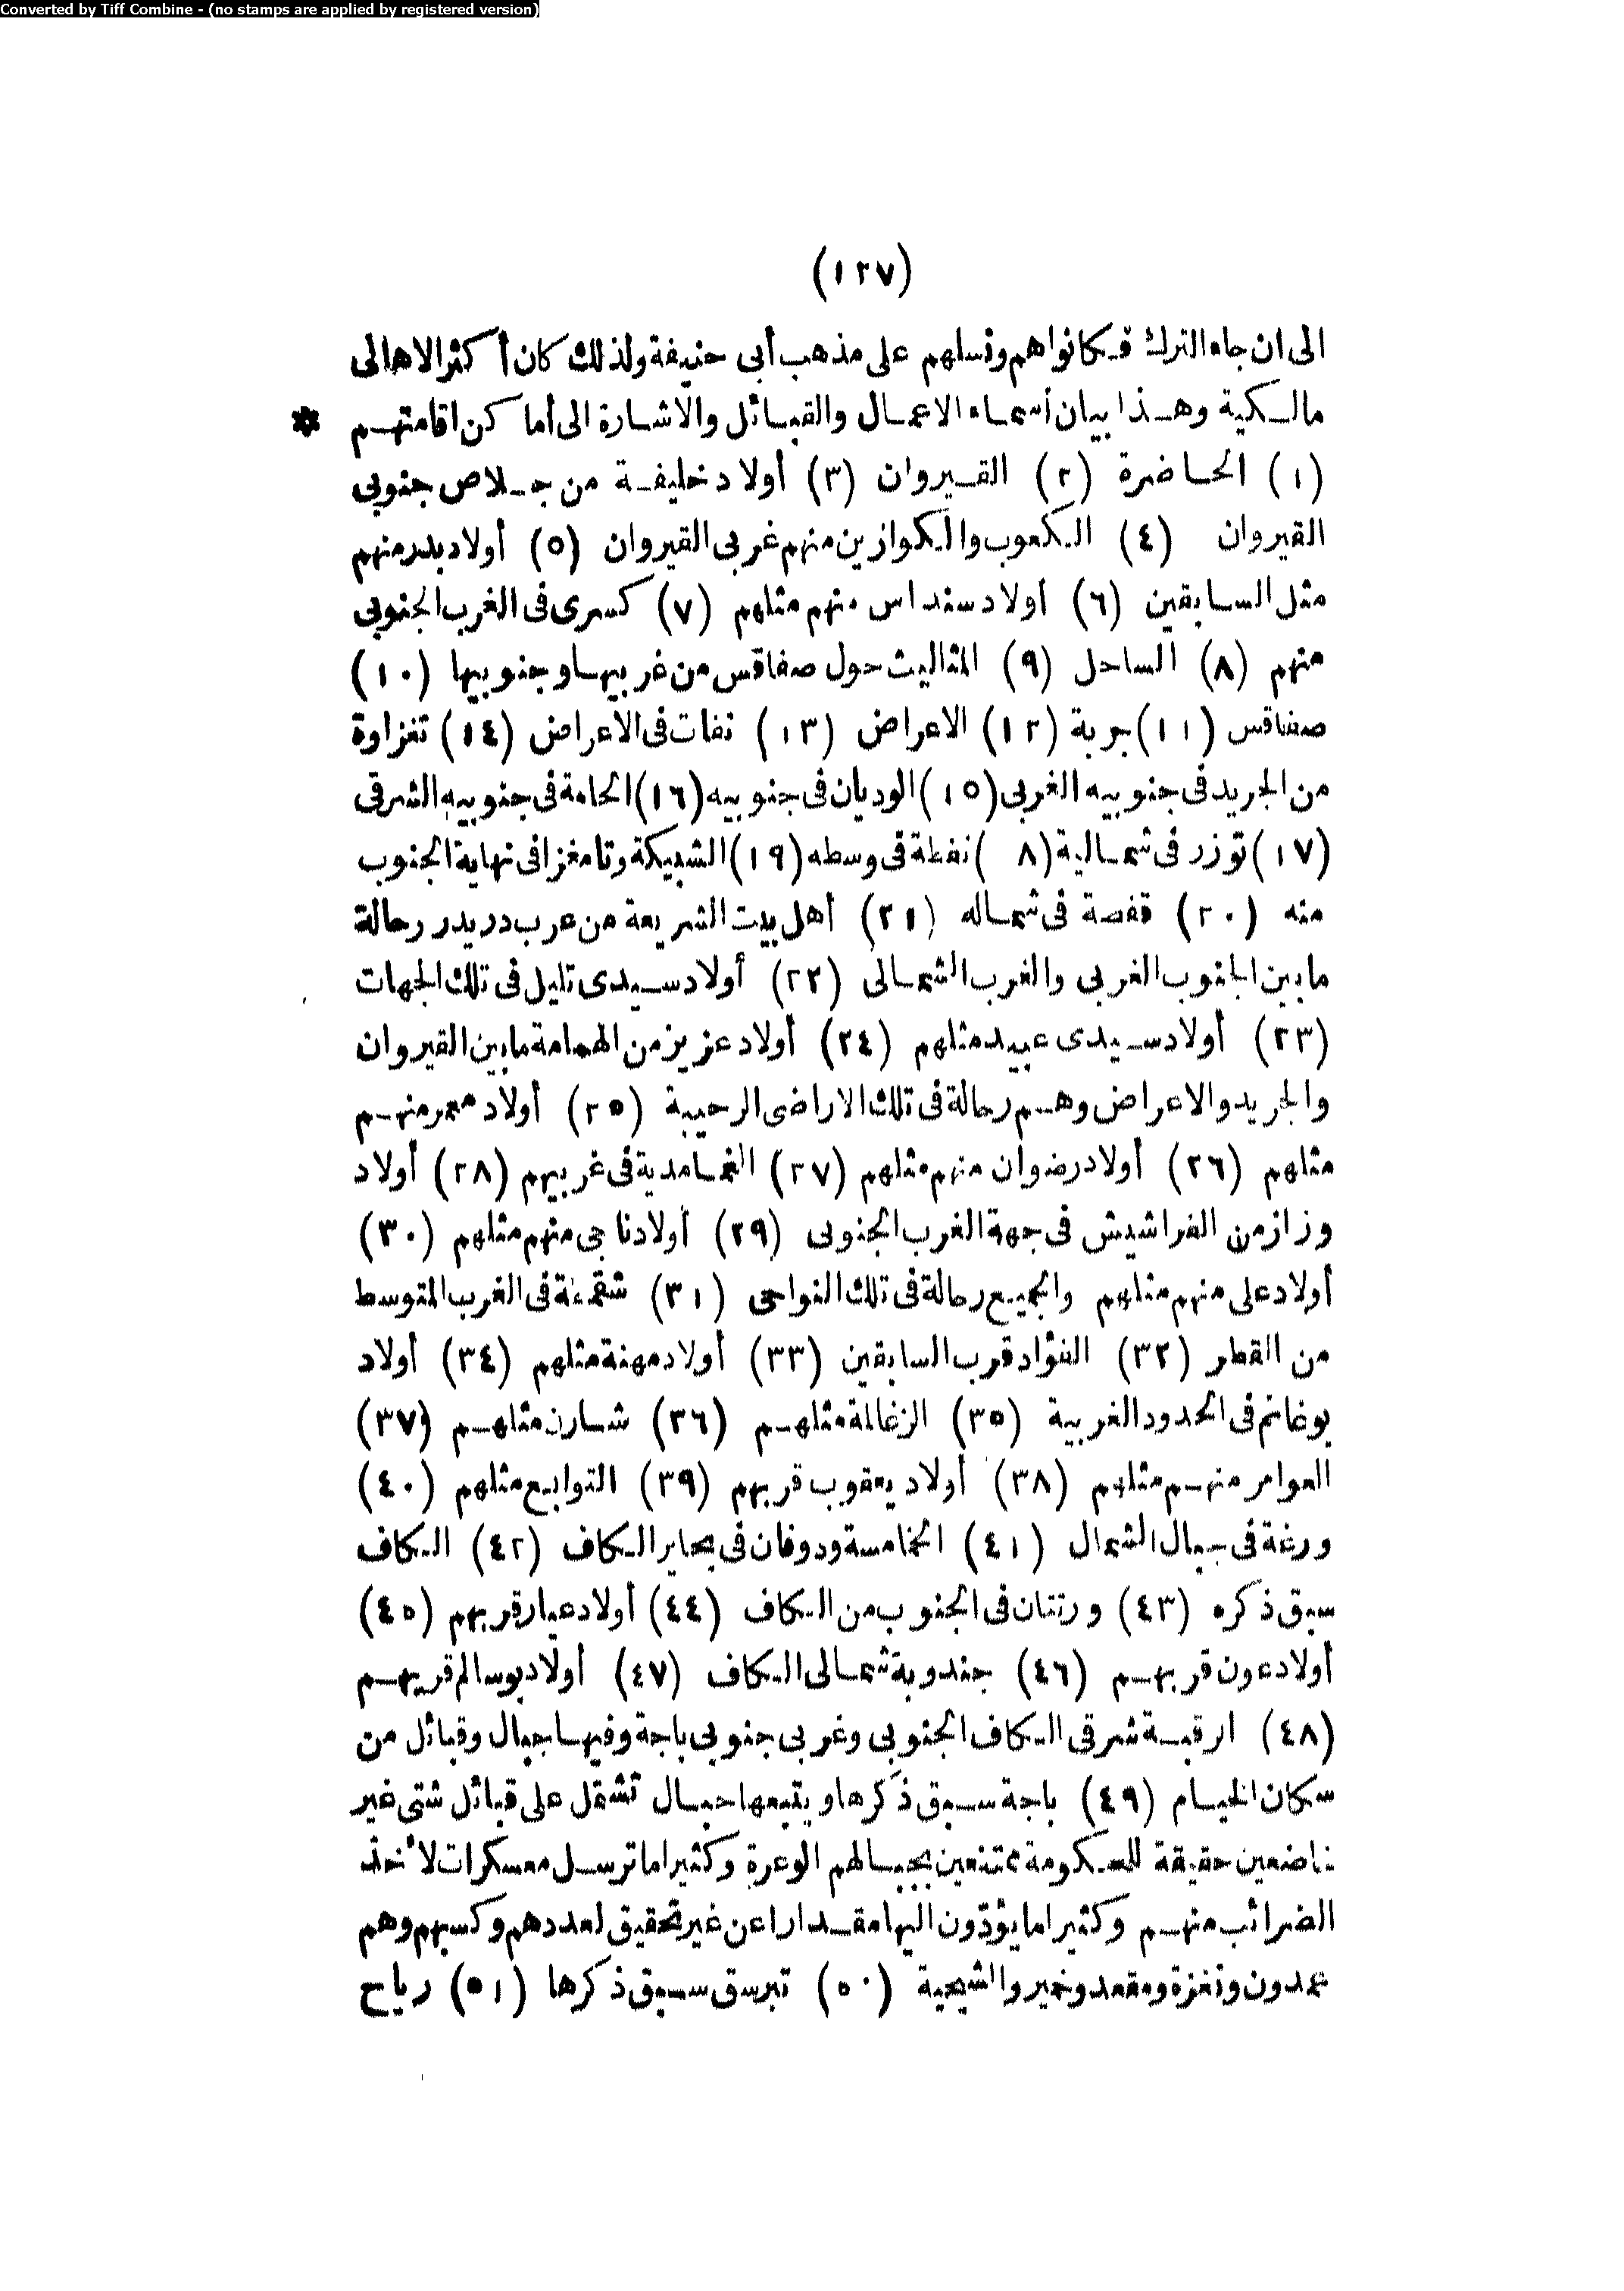 Converted by Tiff Combine - (no stamps are applied by registered version)
(١٢٧)
الى ان جاء الترك فكانواهم ونسلهم على مذهب أبى حنيفة ولذلك كان أكثر الاهالى
مالكية وهذا بيان أسماء الاعمال والقبائل والاشارة الى أماكن اقامتهم *
(١) الحاضرة (٢) القيروان (٣) أولاد خليفة من جلاص جنوبى
القيروان (٤) الكعوب والكوازين منهم غربى القيروان (٥) أولاد يدير منهم
مثل السابقين (٦) أولاد سنداس منهم مثلهم (٧) كسرى فى الغرب الجنوبى
منهم (٨) الساحل (٩) المثاليث حول صفاقس من غربيها وجنوبيها (١٠)
صفاقس (١١) جربة (١٢) الاعراض (١٣) نفات فى الاعراض (١٤) نغزاوة
من الجريد فى جنوبيه الغربى (١٥) الوديان فى جنوبيه (١٦) الحامة فى جنوبيه الشرقى
(١٧) توزر فى شمالية (٨ ) نفطة فى وسطه (١٩) الشبيكة وتامغزا فى نهاية الجنوب
منه (٢٠) قفصة فى شماله (٢١) أهل بيت الشريعة من عرب دريد رحالة
ما بين الجنوب الغربى والغرب الشمالى (٢٢) أولاد سيدى تليل فى تلك الجهات
(٢٣) أولاد سيدى عبيد مثلهم (٢٤) أولاد عزيز من الهمامة ما بين القيروان
والجريد والاعراض وهم رحالة فى تلك الاراضى الرحيبة (٢٥) أولاد معمر منهم
مثلهم (٢٦) أولاد رضوان منهم مثلهم (٢٧) الغمامدية فى غربيهم (٢٨) أولاد
وزاز من الفراشيش فى جهة الغرب الجنوبى (٢٩) أولاد ناجى منهم مثلهم (٣٠)
أولاد على منهم مثلهم والجميع رحالة فى تلك النواحى (٣١) شقمة فى الغرب المتوسط
من القطر (٣٢) الفؤاد قرب السابقين (٣٣) أولاد مهنة مثلهم (٣٤) أولاد
بوغانم فى الحدود الغربية (٣٥) الزغالمة مثلهم (٣٦) شارن مثلهم (٣٧)
العوامر منهم مثلهم (٣٨) أولاد يعقوب قربهم (٣٩) التوابع مثلهم (٤٠)
ورغة فى جبال الشمال (٤١) الخمامسة ودوفان فى بحاير الكاف (٤٢) الكاف
سبق ذكره (٤٣) ورتتان فى الجنوب من الكاف (٤٤) أولاد عيار قربهم (٤٥)
أولاد عون قربهم (٤٦) جندوبة شمالى الكاف (٤٧) أولاد بوسالم قربهم
(٤٨) ارقبة شرقى الكاف الجنوبى وغربى جنوبى باجة وفيها جبال وقبائل من
سكان الخيام (٤٩) باجة سبق ذكرها ويتبعها جبال تشتمل على قبائل شتى غير
خاضعين حقيقة للحكومة ممتنعين بجبالهم الوعرة وكثيرا ما ترسل معسكرات لأخذ
الضرائب منهم وكثيرا ما يؤدّون اليها مقدارا عن غير تحقيق لعددهم وكسبهم وهم
عمدون ونغزة ومقعد وخمير والشيحية (٥٠) تبرسق سبق ذكرها (٥١) رياح